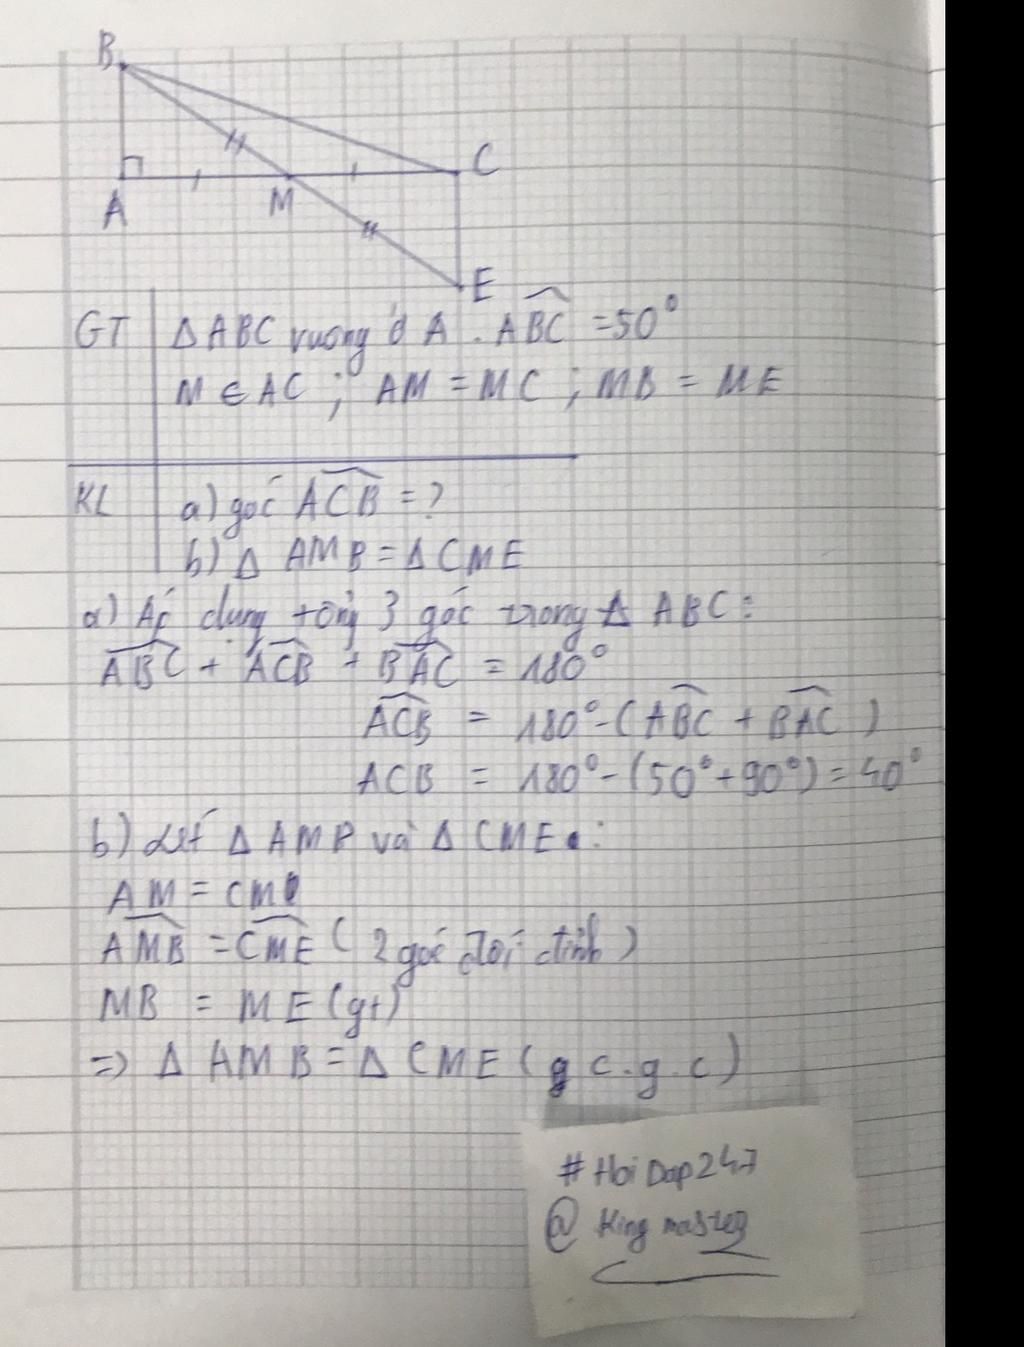 B
C
A M
E
GT ΔABC vuông ở A . ABC = 50°
M ∈ AC ; AM = MC ; MB = ME
KL a) góc ACB = ?
b) Δ AMB = Δ CME
a) Áp dụng tổng 3 góc trong Δ ABC :
ABC + ACB + BAC = 180°
ACB = 180° - (ABC + BAC)
ACB = 180° - (50° + 90°) = 40°
b) Xét Δ AMB và Δ CME :
AM = CM
AMB = CME ( 2 góc đối đỉnh )
MB = ME (gt)
=> Δ AMB = Δ CME ( c.g.c )
#HoiDap247
@ King master